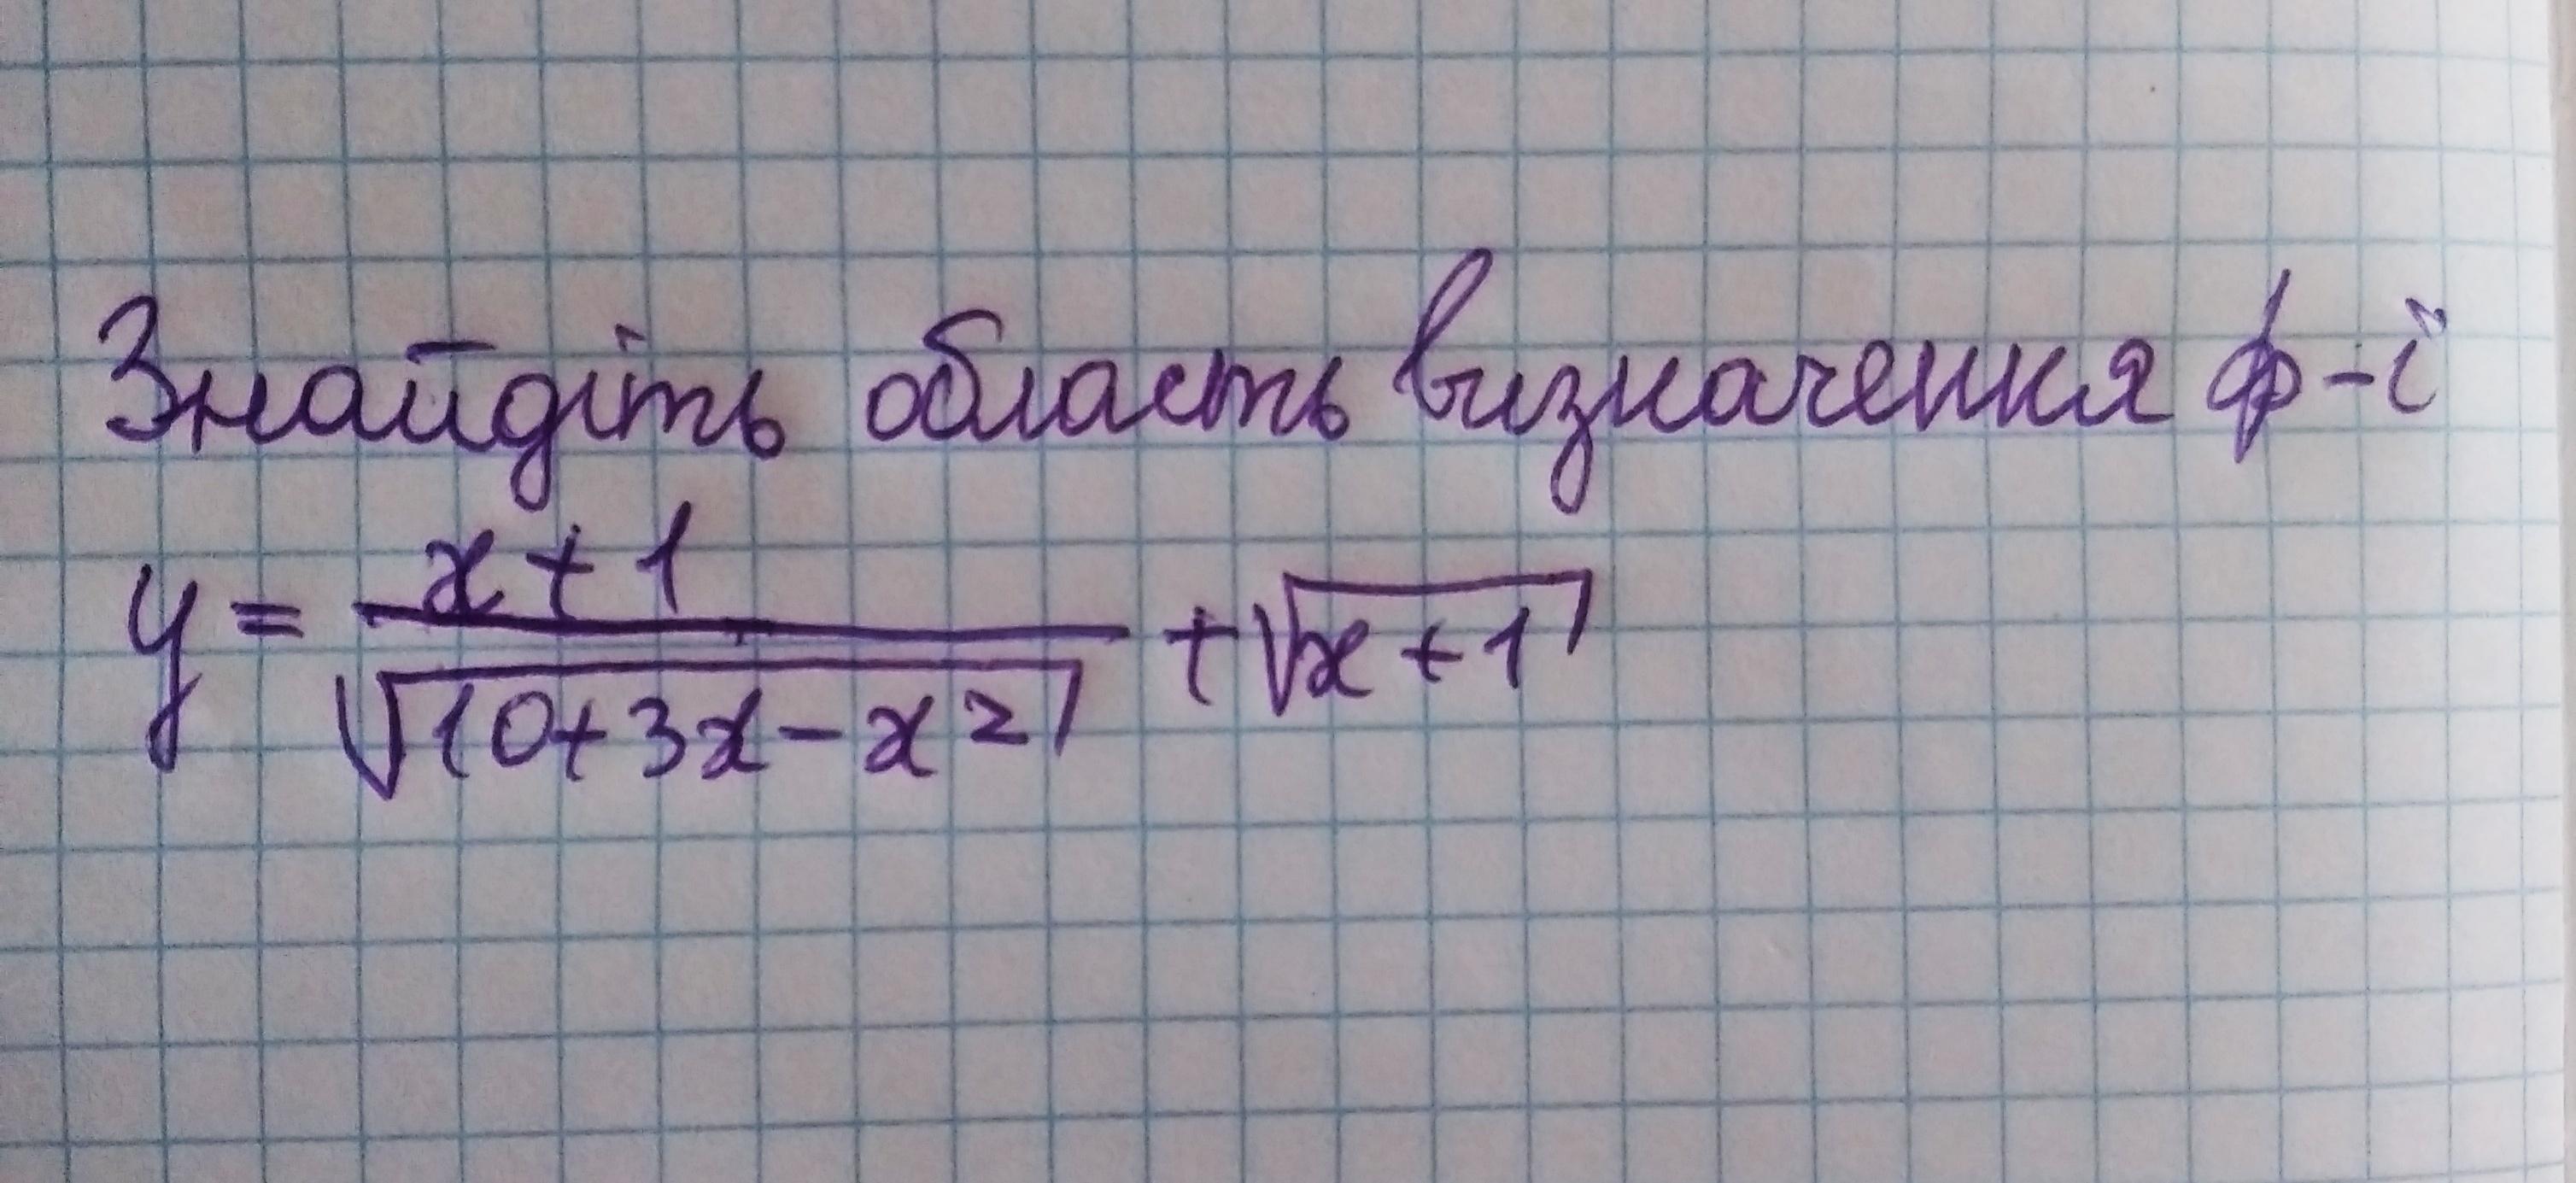 Знайдіть область визначення ф-ї
y = \frac{x+1}{\sqrt{10+3x-x^2}} + \sqrt{x+1}